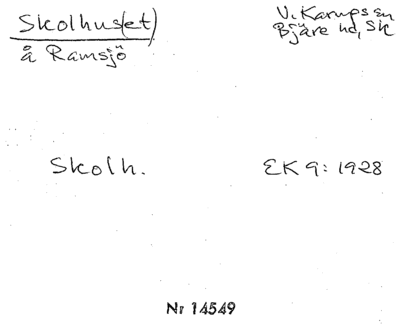 Skolhus(et)
å Ramsjö
V. Karups sn
Bjäre hd, Sk
Skolh.
EK 9: 1928
Nr 14549